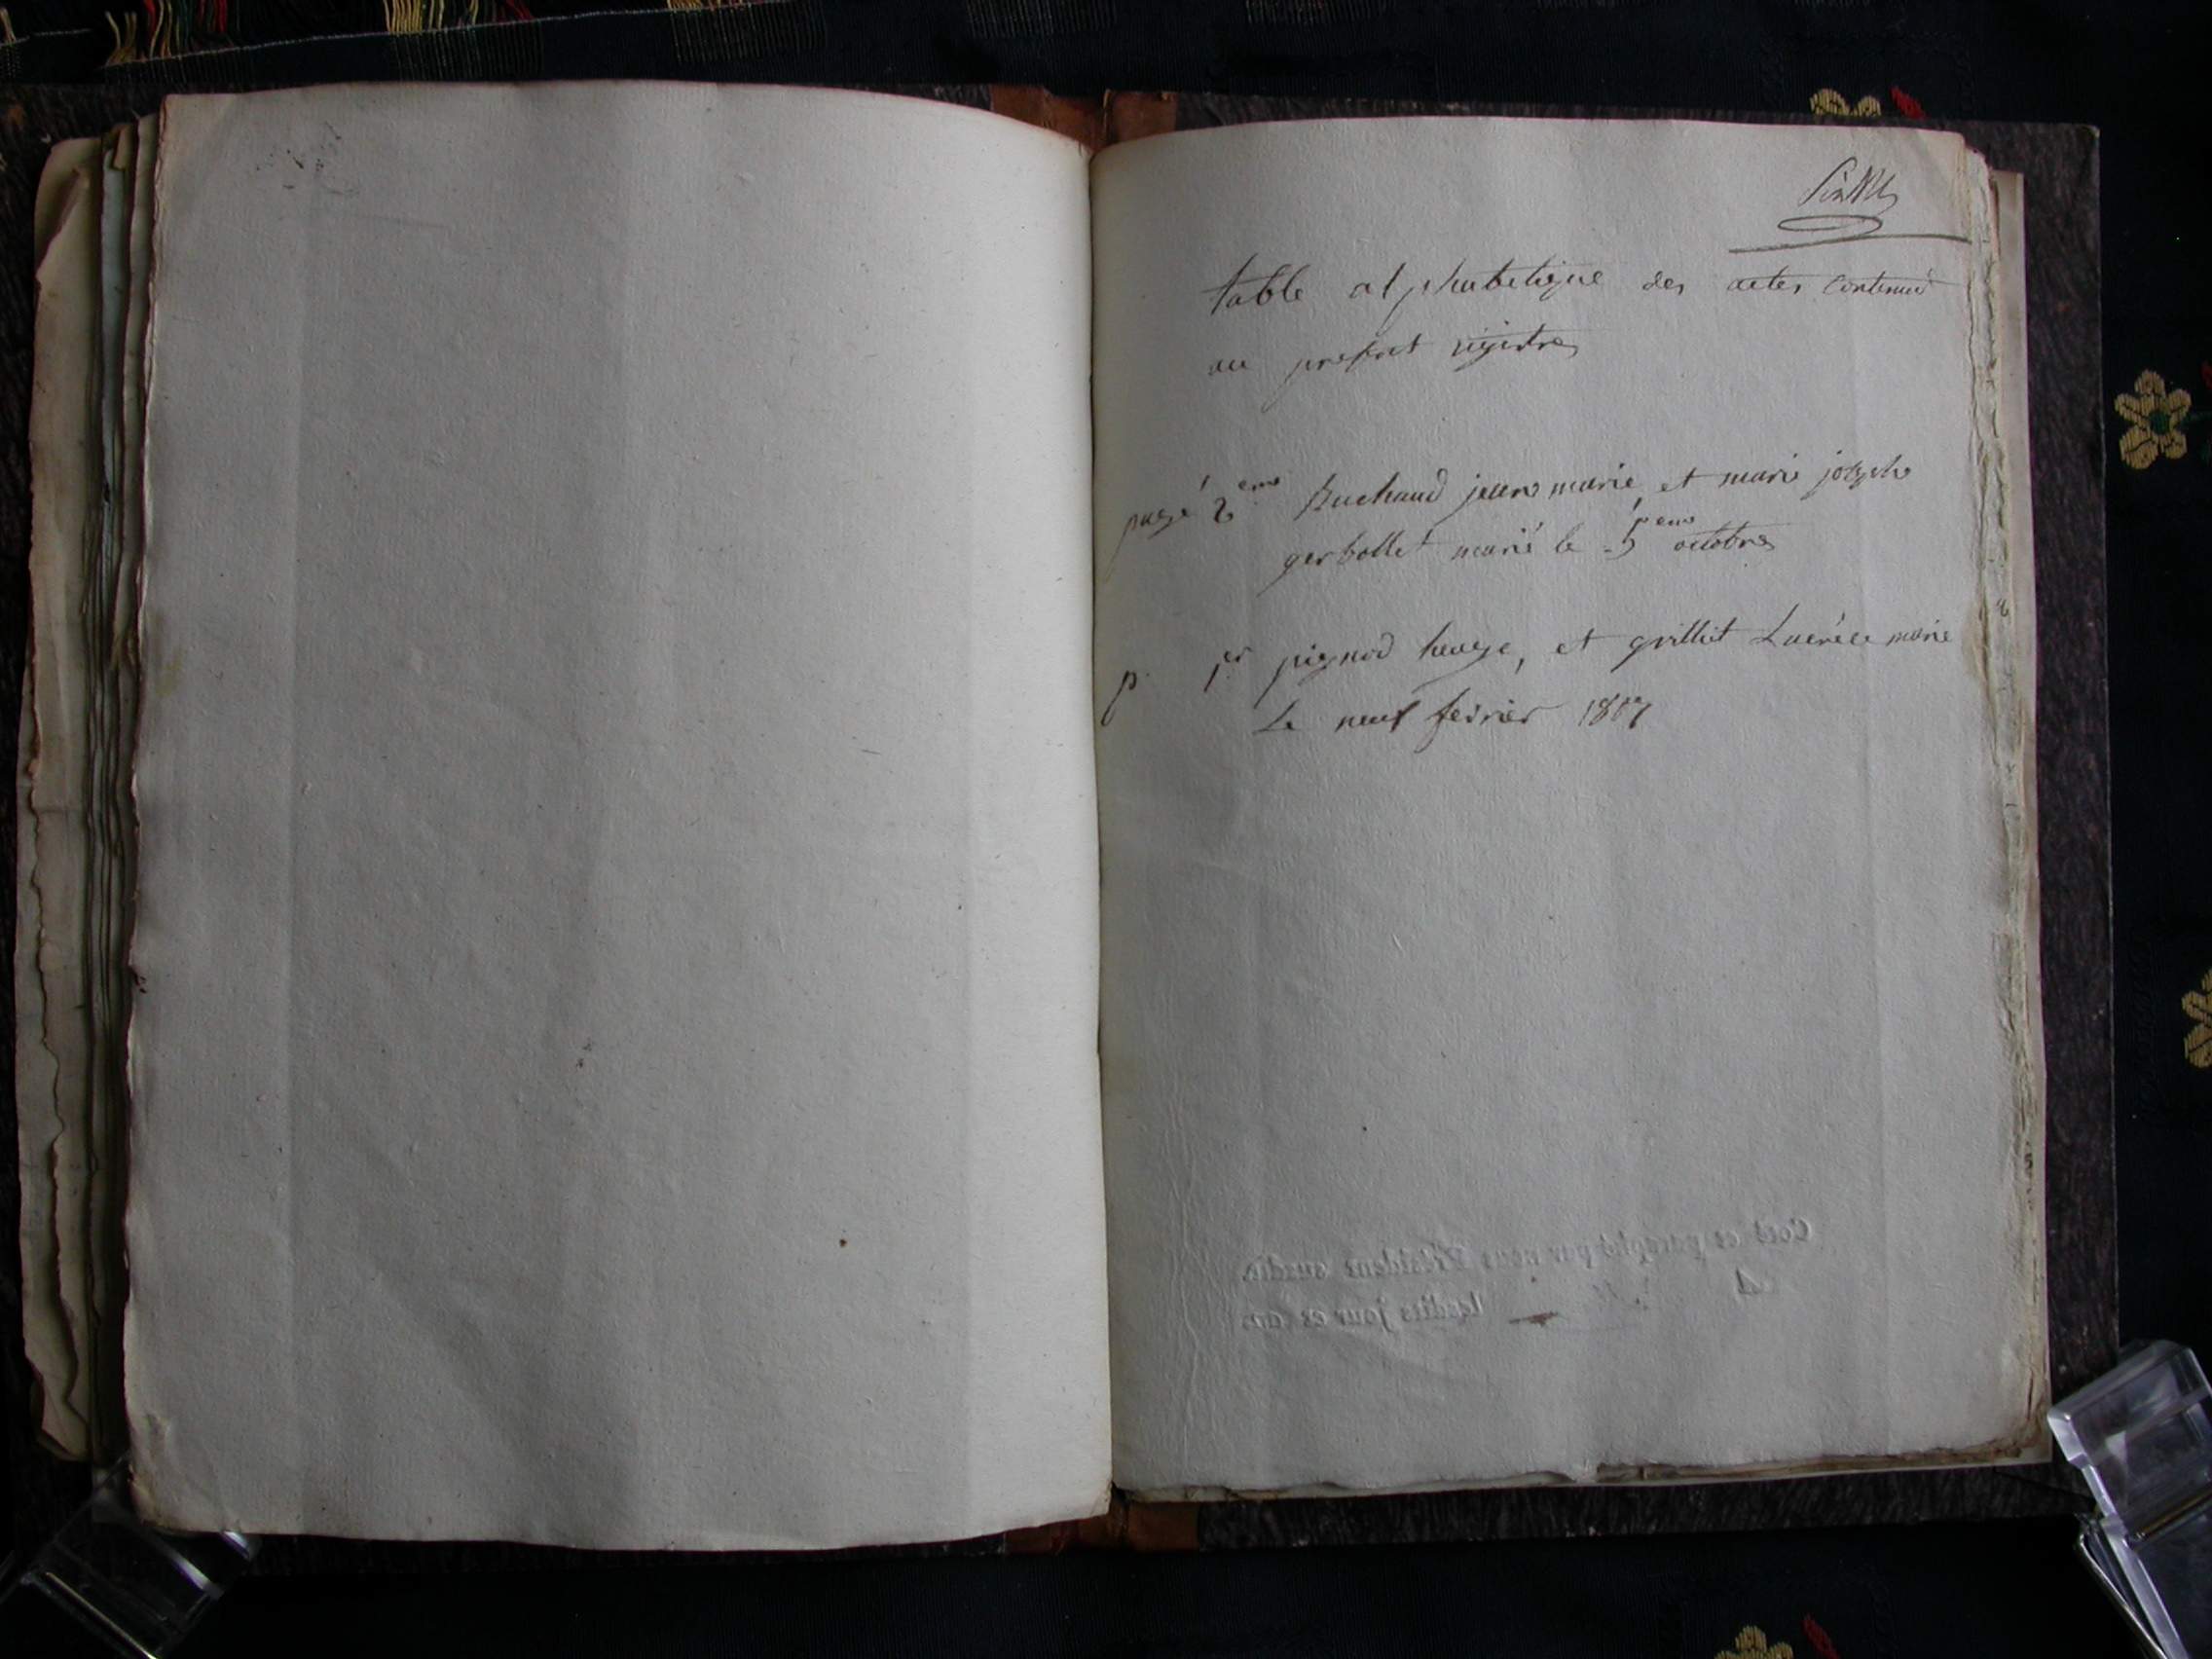 table alphabetique des actes contenud
au present régistre
page 2eme Buchaud jean marie, et marie josephe
gerbollet marié le 5eme octobre
p. 1er pignod heuge, et grilliet Lucréce marie
Le neuf fevrier 1807
Coté et paraphé par nous Président susdit,
lesdits jour et an